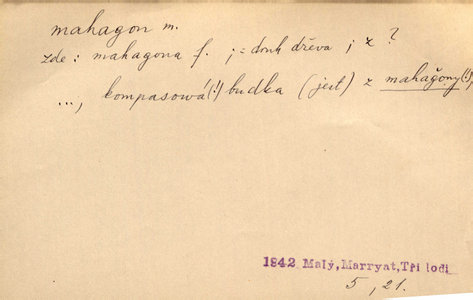 mahagon m.
zde : mahagona f. ; = druh dřeva ; z ?
..., kompasowá (!) budka (jest) z mahagony (!),
1842 Malý, Marryat, Tři lodi
5, 21.